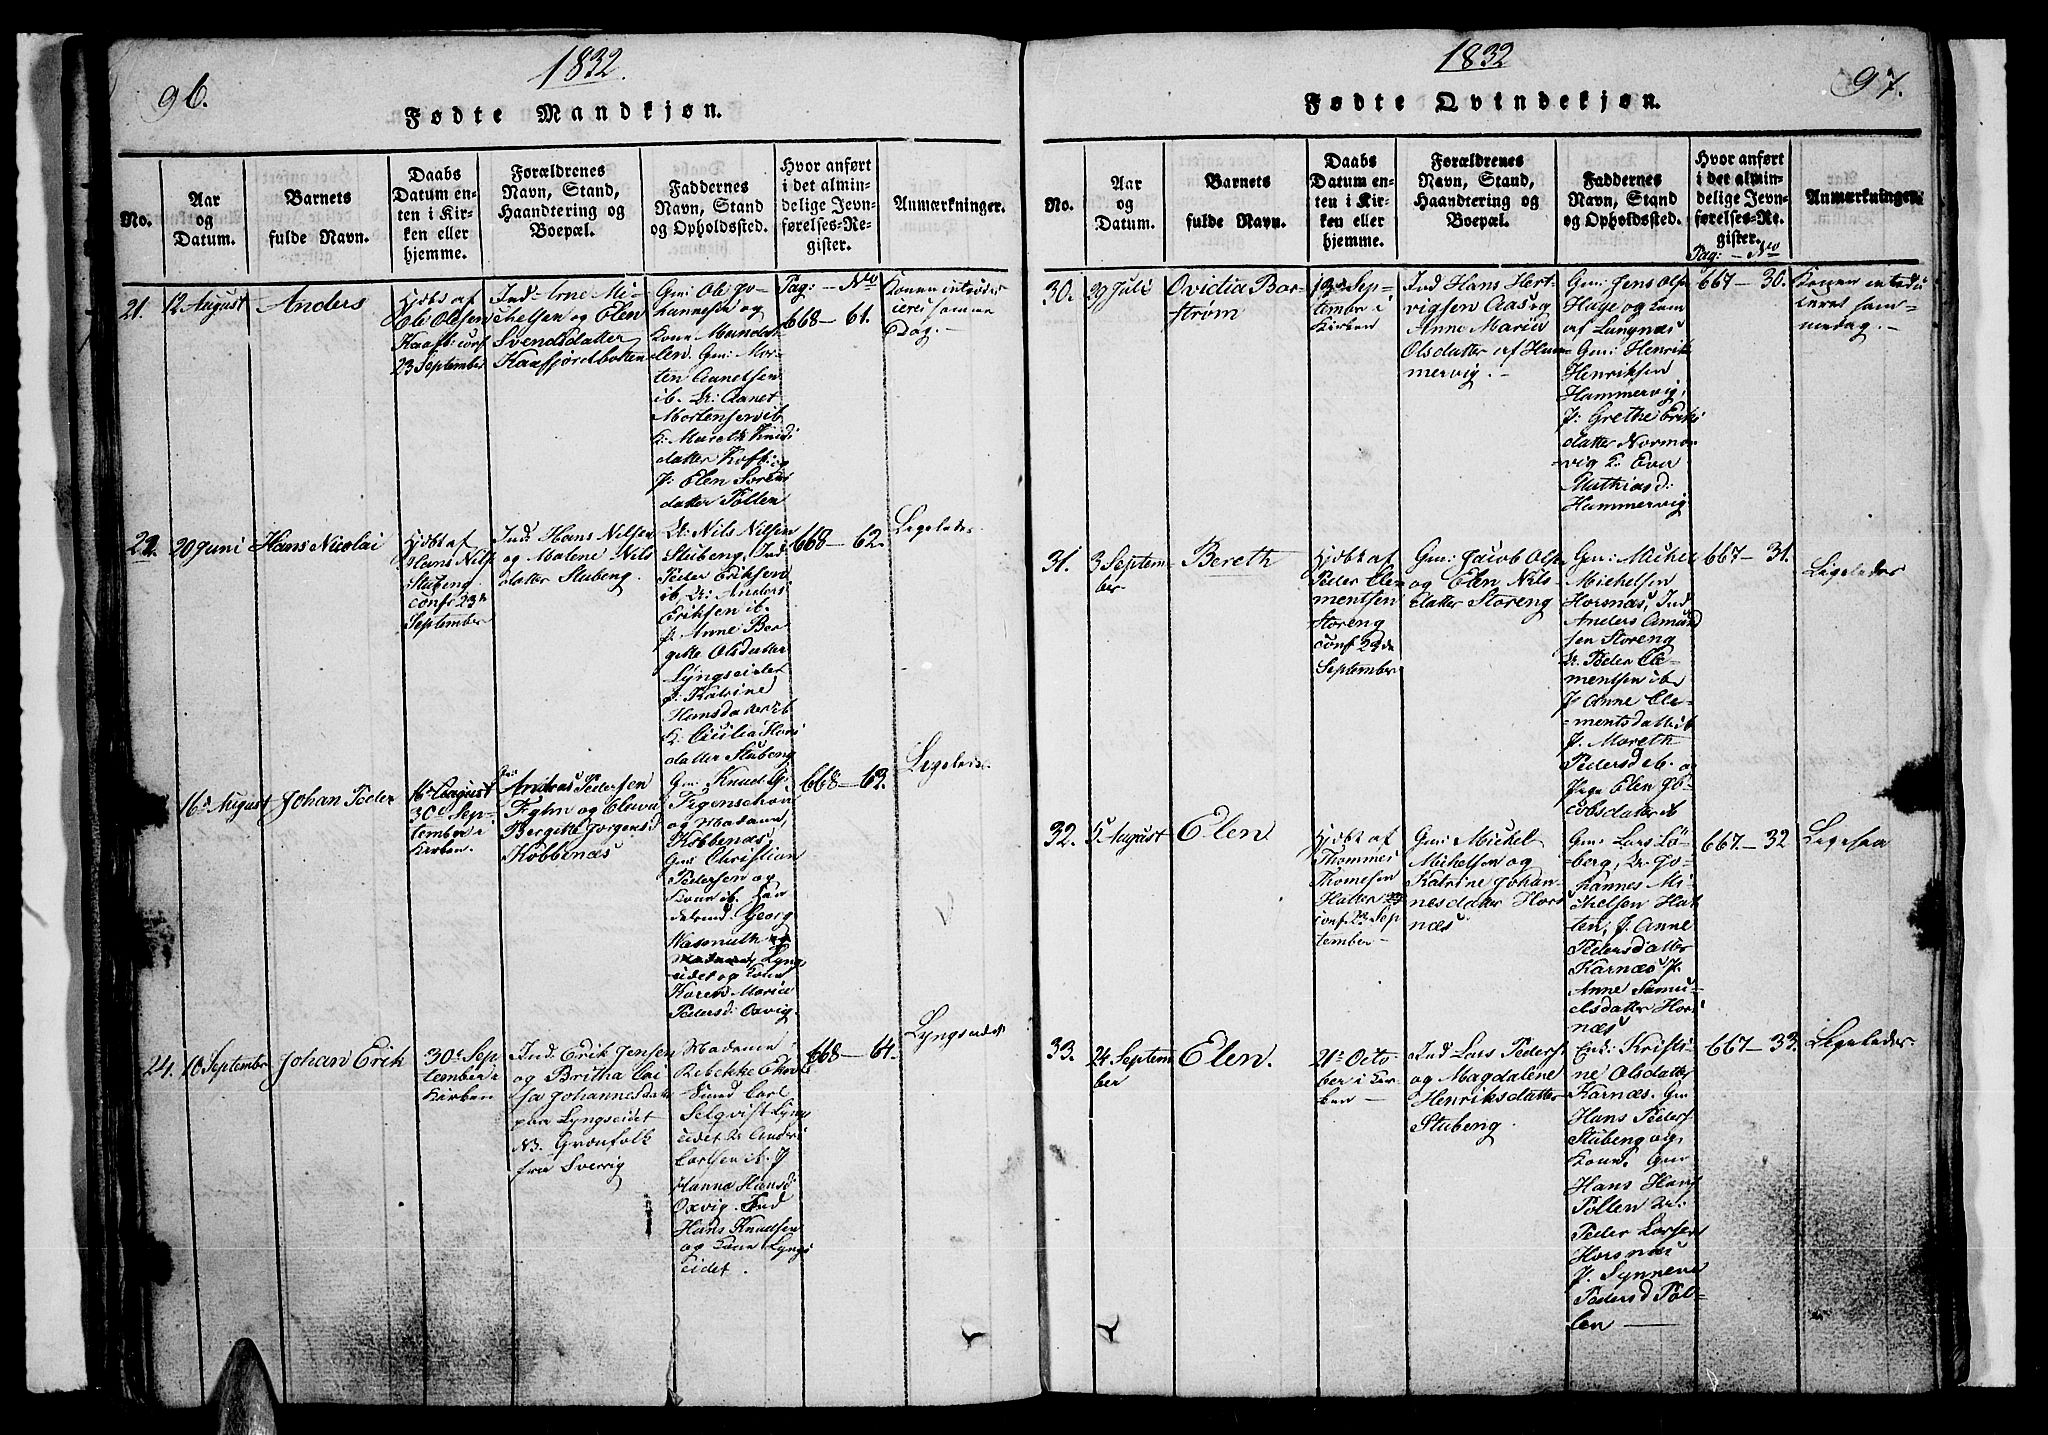 1832.
96.
Fødte Mandkjøn.
No.
Aar
og
Datum.
Barnets
fulde Navn.
Daabs
Datum en-
ten i Kir-
ken eller
hjemme.
Forældrenes
Navn, Stand,
Haandtering og
Boepæl.
Faddernes
Navn, Stand
og Opholdssted.
Hvor anført
i det almin-
delige Jevn-
førelses-Re-
gister.
Anmærkninger.
21.
12 August
Anders
Hjdbt af
Ole Olsen
Kaafi: conf
23 September
Ind: Arne Mi-
chelsen og Elen
Svendsdatter
Kaafjordbotten
Gm: Ole Jo-
hannesen og
Kone
Gm: Mor-
ten Aanetsen
ib. Dr: Aanet
Mortensen ib
datter
P: Elen Sørens
datter Pollen
Pag: — No
668 — 61.
Konen introd
samme
Dag. —
22.
20 Juni
Hans Nicolai
Hjdbt af
Hans Nils
Stubeng
conf 23
September
Ind: Hans Nilsen
og Malene Nils
datter Stubeng.
Dr: Nils Nilsen
Stubeng, Ind
Peder Eriksen
ib. Dr: Anders
Eriksen ib.
P: Anne Ber-
gitte Olsdatter
Lyngseidet
P: Katrine
Hansdatter ib
K: Cicilia
datter Stubeng
668 — 62.
Ligeledes
16 August
Johan Peder
16 August
30 Sep-
tember i
Kirken.
Andreas Pedersen
og
Bergitte Jørgensd
Kobbenæs
Gm: Knud G.
Figenschou
og Madame,
Kobbenæs,
Gm: Christian
Pedersen og
Kone ib.
Georg
Wasmuth
Lyngs
eidet og Kone
Karen Maria
Pedersd: Oxvig.
668 — 63.
Ligeledes
24.
10 Septembr
Johan Erik
30 Sep
tember i
Kirken
Ind: Erik Jensen
og Britha Cai
sa Johannesdatt
paa Lyngseidet
NB. Grovfolk
fra Sverrig
Madame
Rebekke
Sund Carl
Selqvist Lyngs
eidet Dr Andr
Carlsen ib. P
Hanna Hansd
Oxvig. Ind
Hans Knudsen
og Kone Lyngs
eidet.
668 — 64.
Lyngseidet
1832
97.
Fødte Qvindekjøn.
No.
Aar
og
Datum.
Barnets
fulde Navn.
Daabs
Datum en-
ten i Kir-
ken eller
hjemme.
Forældrenes
Navn, Stand,
Haandtering og
Boepæl.
Faddernes
Navn, Stand
og Opholdssted.
Hvor anført
i det almin-
delige Jevn-
førelses-Re-
gister.
Pag: — No
Anmærkninger.
30.
29 Juli
Ovidia Bor-
strøm
Sep-
tember i
Kirken
Ind Hans Hert-
vigsen Aas og
Anne Maria
Olsdatter af Ham-
mervig. —
Gm: Jens Ols
Hage og
af Lungnæs
Gm: Henrik
Henriksen
Hammervig,
P: Grethe Eriks
datter
vig K: Eva
Mathiasd:
Hammervig
667 — 30.
Konen introdu
ceret sam-
medag. —
31.
3 Septem
ber
Bereth
Hjdbt af
Peder Cle
mentsen
Storeng
conf 23 de
September
Gm: Jacob Ols
og Elen Nils
datter Storeng
Gm: Michel
Michelsen
Horsnæs, Ind
Anders Amund
sen Storeng
Dr. Peder Cle-
mentsen ib
P: Anne Cle-
mentsdatt ib
P. Mareth
Pedersd ib. og
Pige Elen Ja-
cobsdatter ib
667 — 31.
Ligeledes
32.
5 August
Elen
Hjdbt af
Thommes
Thomesen
Hatten
conf 23 Sep
tember —
Gm: Michel
Michelsen og
Katrine Johan-
nesdatter Hors
næs
Gm: Lars Lö-
berg, Dr. Jo-
hannes Mi-
chelsen Hat
ten, P. Anne
Pedersdatter
Karnæs P.
Anne Samu-
elsdatter Hors
næs
667 — 32
Ligesaa
33.
24 Septem
ber
Elen.
21 Octo-
ber i Kir-
ken —
Ind Lars Peders
og Magdalene
Henriksdatter
Stubeng.
Enk: Kristi-
ne Olsdatter
Karnæs. Gm
Hans Peders
Stubeng og
Kone. Gm
Hans Hans
Pollen Dr:
Peder Larsen
Horsnæs
P. Synneve
Pedersd Pol-
len —
667 — 33.
Ligeledes